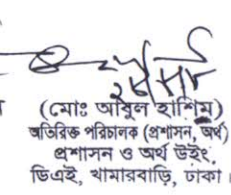 (মোঃ আবুল হাশিম)
অতিরিক্ত পরিচালক (প্রশাসন, অর্থ)
প্রশাসন ও অর্থ উইং,
ডিএই, খামারবাড়ি, ঢাকা।